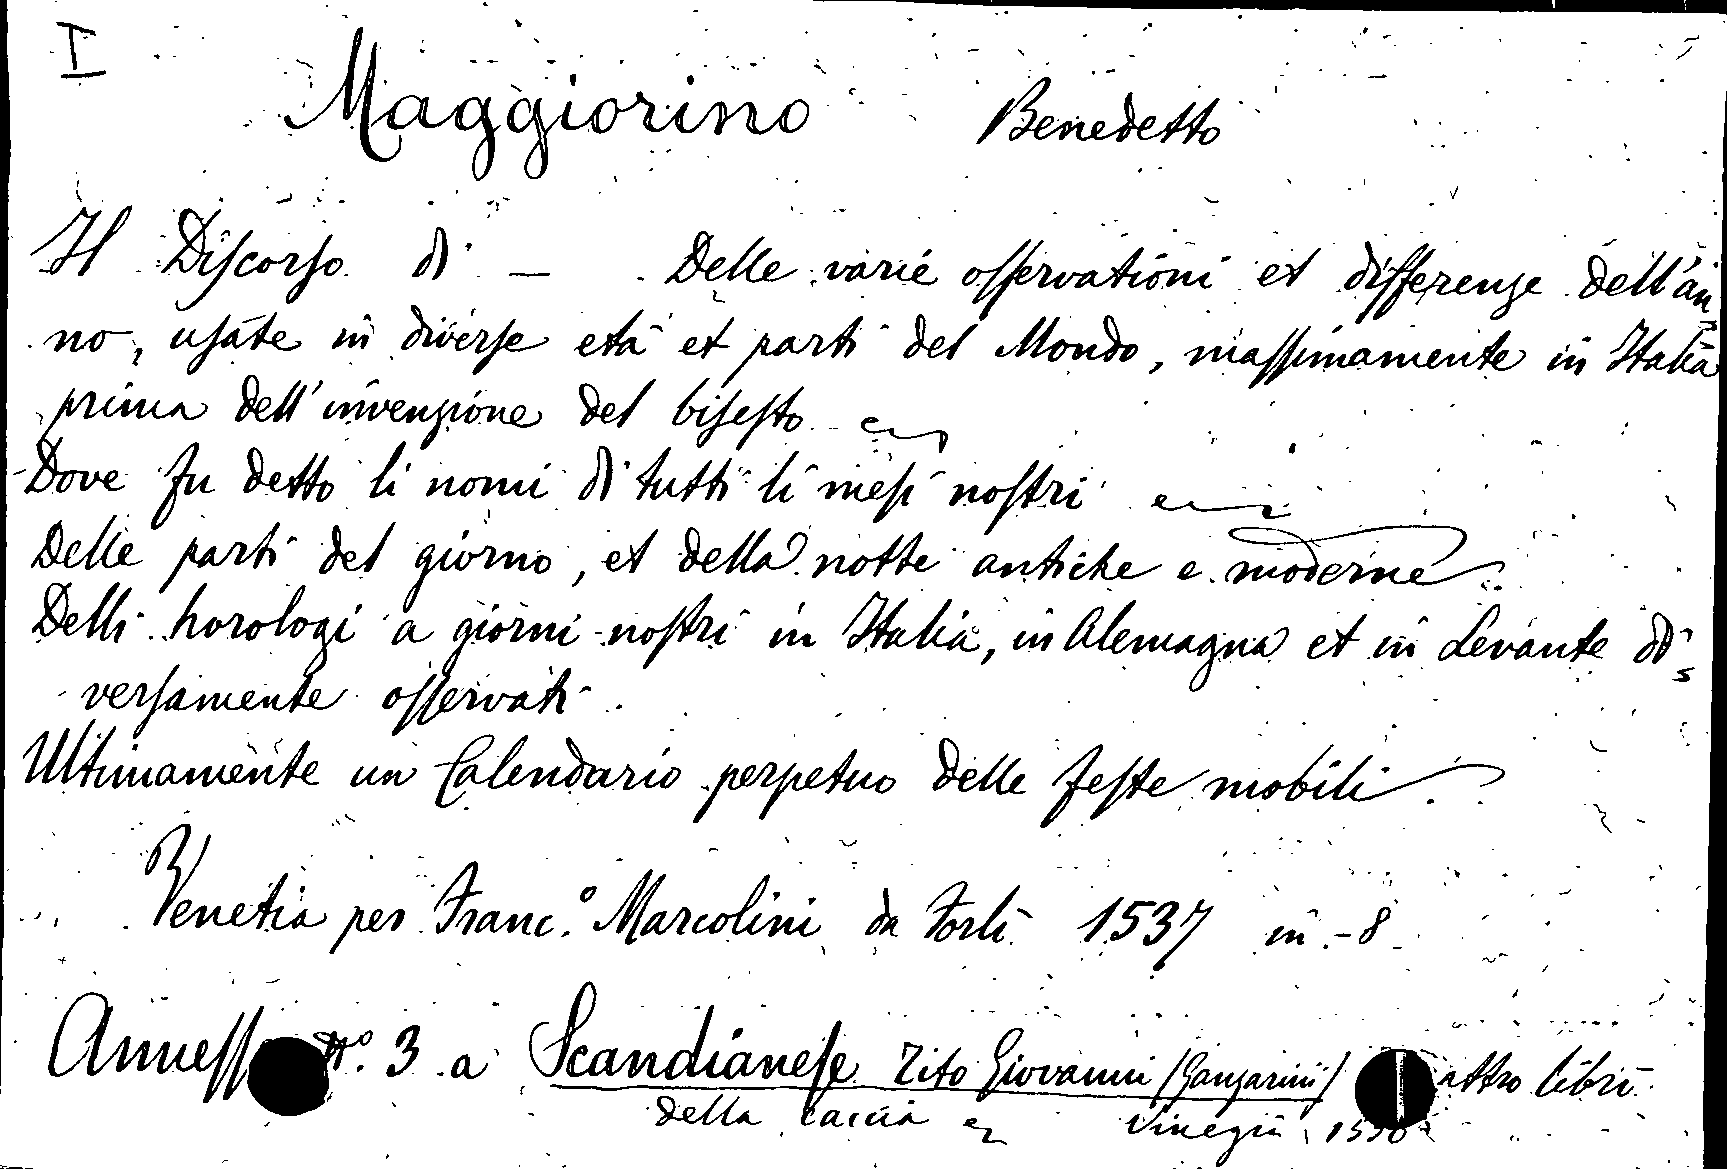 I
Maggiorino Benedetto
Il Discorso di — Delle varie osservationi et differenze dell'an=
no, usate in diverse età et parti del Mondo, massimamente in Italia
prima dell'invenzione del bisesto
Dove fu detto li nomi di tutti li mesi nostri
Delle parti del giorno, et della notte antiche e moderne
Delli horologi a giorni nostri in Italia, in Alemagna et in Levante di=
versamente osservati
Ultimamente un Calendario perpetuo delle feste mobili.
Venetia per Franc.º Marcolini da Forlì 1537 in-8
Anness Nº. 3 a Scandianese Tito Giovanni (Ganzarini) attro libri
della caccia Vinegia